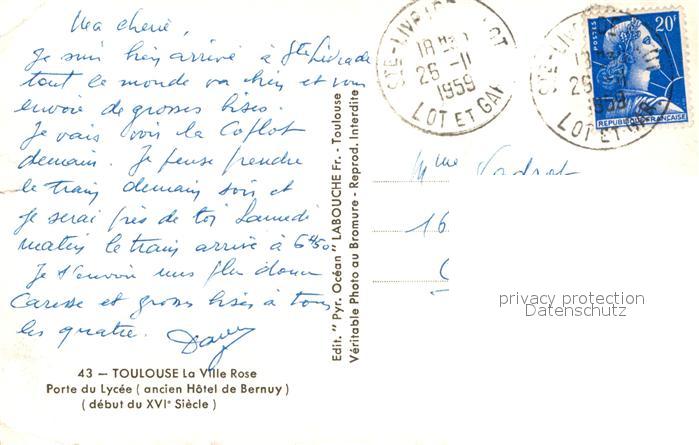 Ma chérie,
Je suis bien arrivé à Ste Livrade
tout le monde va bien et vous
envoie de grosses bises.
Je vais voir la Coflot
demain. Je pense prendre
le train demain soir et
je serai près de toi Samedi
matin le train arrive à 6h50.
Je t'envoie une plus douce
Caresse et grosses bises à tous
les quatre.
43 — TOULOUSE La Ville Rose
Porte du Lycée ( ancien Hôtel de Bernuy )
( début du XVIe Siècle )
Edit. " Pyr. Océan " LABOUCHE Fr. - Toulouse
Véritable Photo au Bromure - Reprod. Interdite
LOT
18H
26 -11
1959
LOT ET GA
26 -11
1959
LOT ET
POSTES
20F
REPUBLIQUE FRANÇAISE
Mme
16
privacy protection
Datenschutz